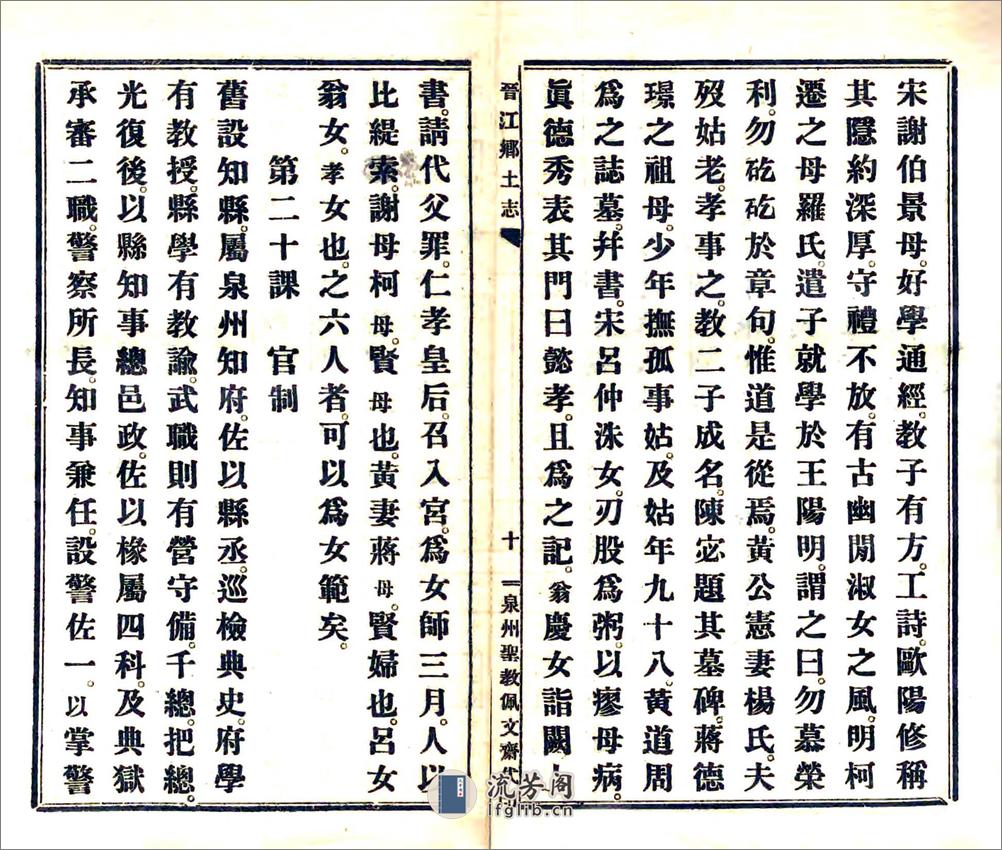 宋謝伯景母。好學通經。教子有方。工詩。歐陽修稱
其隱約深厚。守禮不放。有古幽閒淑女之風。明柯
遷之母羅氏。遣子就學於王陽明。謂之曰。勿慕榮
利。勿矻矻於章句。惟道是從焉。黃公憲妻楊氏。夫
歿姑老。孝事之。教二子成名。陳宓題其墓碑。蔣德
璟之祖母。少年撫孤事姑。及姑年九十八。黃道周
為之誌墓。幷書。宋呂仲洙女。刃股為粥。以瘳母病。
眞德秀表其門曰懿孝。且為之記。翁慶女詣闕上
晉江鄉土志
十
泉州聖教佩文齋代印
書。請代父罪。仁孝皇后。召入宮。為女師三月。人以
比緹索。謝母柯母。賢母也。黃妻蔣母。賢婦也。呂女
翁女。孝女也。之六人者。可以為女範矣。
第二十課 官制
舊設知縣。屬泉州知府。佐以縣丞。巡檢典史。府學
有教授。縣學有教諭。武職則有營守備。千總。把總。
光復後。以縣知事總邑政。佐以橡屬四科。及典獄
承審二職。警察所長。知事兼任。設警佐一。以掌警
流芳阁
lfglib.cn